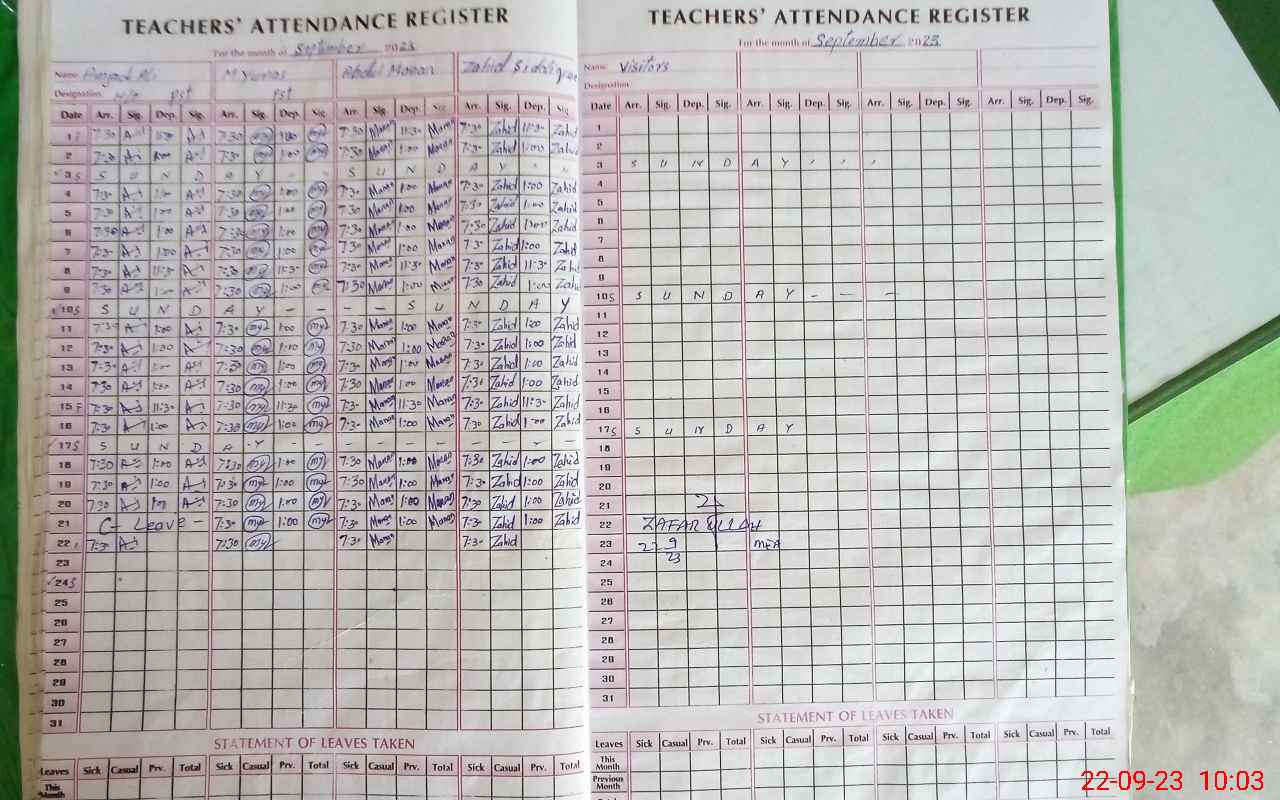 TEACHERS' ATTENDANCE REGISTER
For the month of September 2023
Name Amjad Ali M Yunas Abdul Manan Zahid Siddique
Designation H/t Pst Pst
Date Arr. Sig. Dep. Sig. Arr. Sig. Dep. Sig. Arr. Sig. Dep. Sig Arr. Sig. Dep. Sig
1 F 7:30 1:00 7:30 my 1:00 my 7:30 Manan 11:30 Manan 7:30 Zahid 11:30 Zahid
2 7:30 1:00 7:30 my 1:00 my 7:30 Manan 1:00 Manan 7:30 Zahid 1:00 Zahid
3 S S U N D A Y - - S U N D A Y " "
4 7:30 1:00 7:30 my 1:00 my 7:30 Manan 1:00 Manan 7:30 Zahid 1:00 Zahid
5 7:30 1:00 7:30 my 1:00 my 7:30 Manan 1:00 Manan 7:30 Zahid 1:00 Zahid
6 7:30 1:00 7:30 my 1:00 my 7:30 Manan 1:00 Manan 7:30 Zahid 1:00 Zahid
7 7:30 1:00 7:30 my 1:00 my 7:30 Manan 1:00 Manan 7:30 Zahid 1:00 Zahid
8 7:30 11:30 7:30 my 11:30 my 7:30 Manan 11:30 Manan 7:30 Zahid 11:30 Zahid
9 7:30 1:00 7:30 my 1:00 my 7:30 Manan 1:00 Manan 7:30 Zahid 1:00 Zahid
10 S S U N D A Y - - - - S U N D A Y
11 7:30 1:00 7:30 my 1:00 my 7:30 Manan 1:00 Manan 7:30 Zahid 1:00 Zahid
12 7:30 1:00 7:30 my 1:00 my 7:30 Manan 1:00 Manan 7:30 Zahid 1:00 Zahid
13 7:30 1:00 7:30 my 1:00 my 7:30 Manan 1:00 Manan 7:30 Zahid 1:00 Zahid
14 7:30 1:00 7:30 my 1:00 my 7:30 Manan 1:00 Manan 7:30 Zahid 1:00 Zahid
15 F 7:30 11:30 7:30 my 11:30 my 7:30 Manan 11:30 Manan 7:30 Zahid 11:30 Zahid
16 7:30 1:00 7:30 my 1:00 my 7:30 Manan 1:00 Manan 7:30 Zahid 1:00 Zahid
17 S S U N D A Y - - - - - - - - - -
18 7:30 1:00 7:30 my 1:00 my 7:30 Manan 1:00 Manan 7:30 Zahid 1:00 Zahid
19 7:30 1:00 7:30 my 1:00 my 7:30 Manan 1:00 Manan 7:30 Zahid 1:00 Zahid
20 7:30 1:00 7:30 my 1:00 my 7:30 Manan 1:00 Manan 7:30 Zahid 1:00 Zahid
21 C- Leave - 7:30 my 1:00 my 7:30 Manan 1:00 Manan 7:30 Zahid 1:00 Zahid
22 7:30 7:30 my 7:30 Manan 7:30 Zahid
23
24 S
25
26
27
28
29
30
31
STATEMENT OF LEAVES TAKEN
Leaves Sick Casual Prv. Total Sick Casual Prv. Total Sick Casual Prv. Total Sick Casual Prv. Total
This Month
TEACHERS' ATTENDANCE REGISTER
For the month of September 2023
Name Visitors
Designation
Date Arr. Sig. Dep. Sig. Arr. Sig. Dep. Sig. Arr. Sig. Dep. Sig. Arr. Sig. Dep. Sig.
1
2
3 S U N D A Y , , ,
4
5
6
7
8
9
10 S S U N D A Y - - -
11
12
13
14
15
16
17 S S U N D A Y
18
19
20
21
22 ZAFAR ULLAH
23 22 9 23 MEA
24
25
26
27
28
29
30
31
STATEMENT OF LEAVES TAKEN
Leaves Sick Casual Prv. Total Sick Casual Prv. Total Sick Casual Prv. Total Sick Casual Prv. Total
This Month
Previous Month
22-09-23 10:03